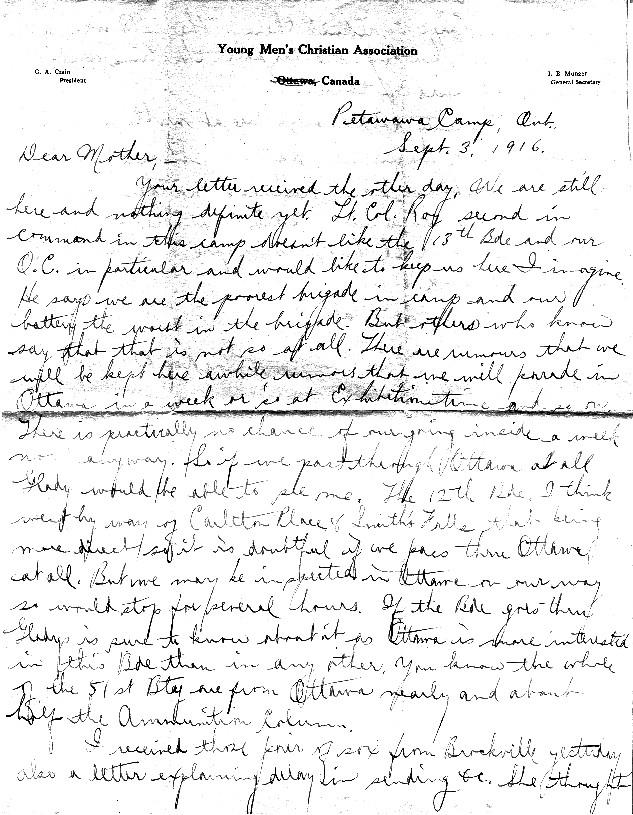 Young Men's Christian Association
G. A. Crain
President
Ottawa, Canada
General Secretary
Petawawa Camp, Ont.
Sept. 3, 1916.
Dear Mother, –
Your letter received the other day. We are still
here and nothing definite yet. Lt. Col. Roy second in
command in this camp doesn't like the 13th Bde and our
O.C. in particular and would like to keep us here I imagine.
He says we are the poorest brigade in camp and our
battery the worst in the brigade. But others who know
say that that is not so at all. There are rumours that we
will be kept here awhile rumors that we will parade in
Ottawa in a week or so at Exhibition time and so on.
There is practically no chance of our going inside a week
now anyway. So if we pass through Ottawa at all
Glady would be able to see me. The 12th Bde. I think
went by way of Carleton Place & Smith's Falls that being
more direct so it is doubtful if we pass thru Ottawa
at all. But we may be inspected in Ottawa on our way
so would stop for several hours. If the Bde goes thru
Gladys is sure to know about it as Ottawa is more interested
in this Bde than in any other. You know the whole
of the 51st Bty are from Ottawa nearly and about
half the Ammunition Column.
I received those pair of sox from Brockville yesterday
also a letter explaining delay in sending &c. She thought